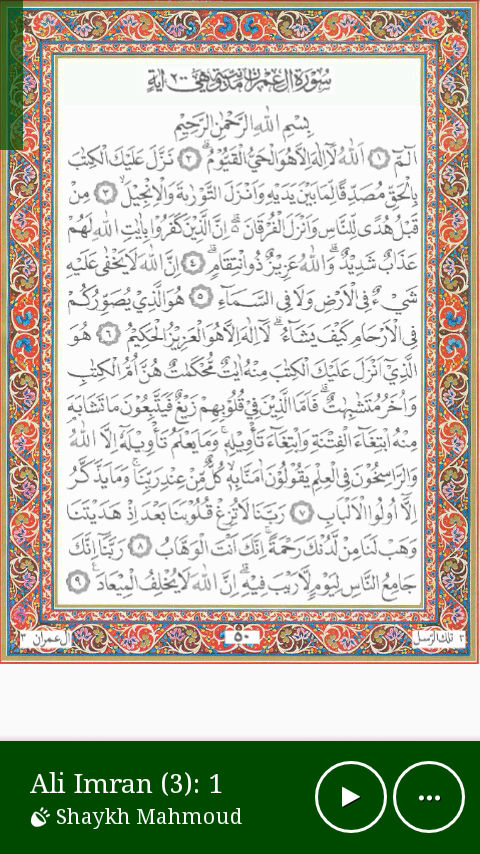 سورة آل عمران مدنية وهي ٢٠٠ آية
بِسْمِ اللهِ الرَّحْمٰنِ الرَّحِيْمِ
الٓمّٓ ۝١ اَللهُ لَآ اِلٰهَ اِلَّا هُوَ الْحَيُّ الْقَيُّوْمُ ۝٢ نَزَّلَ عَلَيْكَ الْكِتٰبَ
بِالْحَقِّ مُصَدِّقًا لِّمَا بَيْنَ يَدَيْهِ وَاَنْزَلَ التَّوْرٰىةَ وَالْاِنْجِيْلَ ۝٣ مِنْ
قَبْلُ هُدًى لِّلنَّاسِ وَاَنْزَلَ الْفُرْقَانَ ۗ اِنَّ الَّذِيْنَ كَفَرُوْا بِاٰيٰتِ اللهِ لَهُمْ
عَذَابٌ شَدِيْدٌ ۗ وَاللهُ عَزِيْزٌ ذُو انْتِقَامٍ ۝٤ اِنَّ اللهَ لَا يَخْفٰى عَلَيْهِ
شَيْءٌ فِي الْاَرْضِ وَلَا فِي السَّمَآءِ ۝٥ هُوَ الَّذِيْ يُصَوِّرُكُمْ
فِي الْاَرْحَامِ كَيْفَ يَشَآءُ ۗ لَآ اِلٰهَ اِلَّا هُوَ الْعَزِيْزُ الْحَكِيْمُ ۝٦ هُوَ
الَّذِيْٓ اَنْزَلَ عَلَيْكَ الْكِتٰبَ مِنْهُ اٰيٰتٌ مُّحْكَمٰتٌ هُنَّ اُمُّ الْكِتٰبِ
وَاُخَرُ مُتَشٰبِهٰتٌ ۗ فَاَمَّا الَّذِيْنَ فِيْ قُلُوْبِهِمْ زَيْغٌ فَيَتَّبِعُوْنَ مَا تَشَابَهَ
مِنْهُ ابْتِغَآءَ الْفِتْنَةِ وَابْتِغَآءَ تَأْوِيْلِهٖ ۚ وَمَا يَعْلَمُ تَأْوِيْلَهٗٓ اِلَّا اللهُ
وَالرَّاسِخُوْنَ فِي الْعِلْمِ يَقُوْلُوْنَ اٰمَنَّا بِهٖ كُلٌّ مِّنْ عِنْدِ رَبِّنَا ۚ وَمَا يَذَّكَّرُ
اِلَّآ اُولُوا الْاَلْبَابِ ۝٧ رَبَّنَا لَا تُزِغْ قُلُوْبَنَا بَعْدَ اِذْ هَدَيْتَنَا
وَهَبْ لَنَا مِنْ لَّدُنْكَ رَحْمَةً ۚ اِنَّكَ اَنْتَ الْوَهَّابُ ۝٨ رَبَّنَآ اِنَّكَ
جَامِعُ النَّاسِ لِيَوْمٍ لَّا رَيْبَ فِيْهِ ۗ اِنَّ اللهَ لَا يُخْلِفُ الْمِيْعَادَ ۝٩
٣ تلك الرسل ٥٠ ال عمران ٣
Ali Imran (3): 1
Shaykh Mahmoud